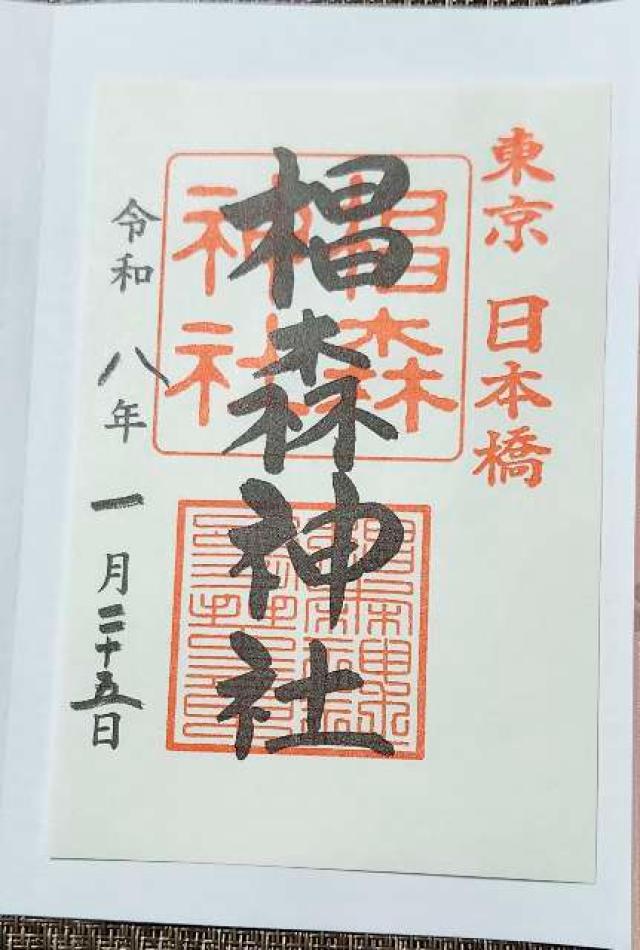 東京 日本橋
椙森神社
椙森
神社
令和八年一月二十五日